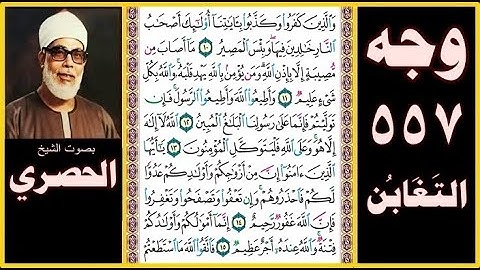 وجه
٥٥٧
التغابن
بصوت الشيخ
الحصري
وَالَّذِينَ كَفَرُوا وَكَذَّبُوا بِآيَاتِنَا أُولَٰئِكَ أَصْحَابُ
النَّارِ خَالِدِينَ فِيهَا وَبِئْسَ الْمَصِيرُ ١٠ مَا أَصَابَ مِن
مُّصِيبَةٍ إِلَّا بِإِذْنِ اللَّهِ وَمَن يُؤْمِن بِاللَّهِ يَهْدِ قَلْبَهُ وَاللَّهُ بِكُلِّ
شَيْءٍ عَلِيمٌ ١١ وَأَطِيعُوا اللَّهَ وَأَطِيعُوا الرَّسُولَ فَإِن
تَوَلَّيْتُمْ فَإِنَّمَا عَلَىٰ رَسُولِنَا الْبَلَاغُ الْمُبِينُ ١٢ اللَّهُ لَا إِلَٰهَ
إِلَّا هُوَ وَعَلَى اللَّهِ فَلْيَتَوَكَّلِ الْمُؤْمِنُونَ ١٣ يَا أَيُّهَا
الَّذِينَ آمَنُوا إِنَّ مِنْ أَزْوَاجِكُمْ وَأَوْلَادِكُمْ عَدُوًّا
لَّكُمْ فَاحْذَرُوهُمْ وَإِن تَعْفُوا وَتَصْفَحُوا وَتَغْفِرُوا
فَإِنَّ اللَّهَ غَفُورٌ رَّحِيمٌ ١٤ إِنَّمَا أَمْوَالُكُمْ وَأَوْلَادُكُمْ
فِتْنَةٌ وَاللَّهُ عِندَهُ أَجْرٌ عَظِيمٌ ١٥ فَاتَّقُوا اللَّهَ مَا اسْتَطَعْتُمْ